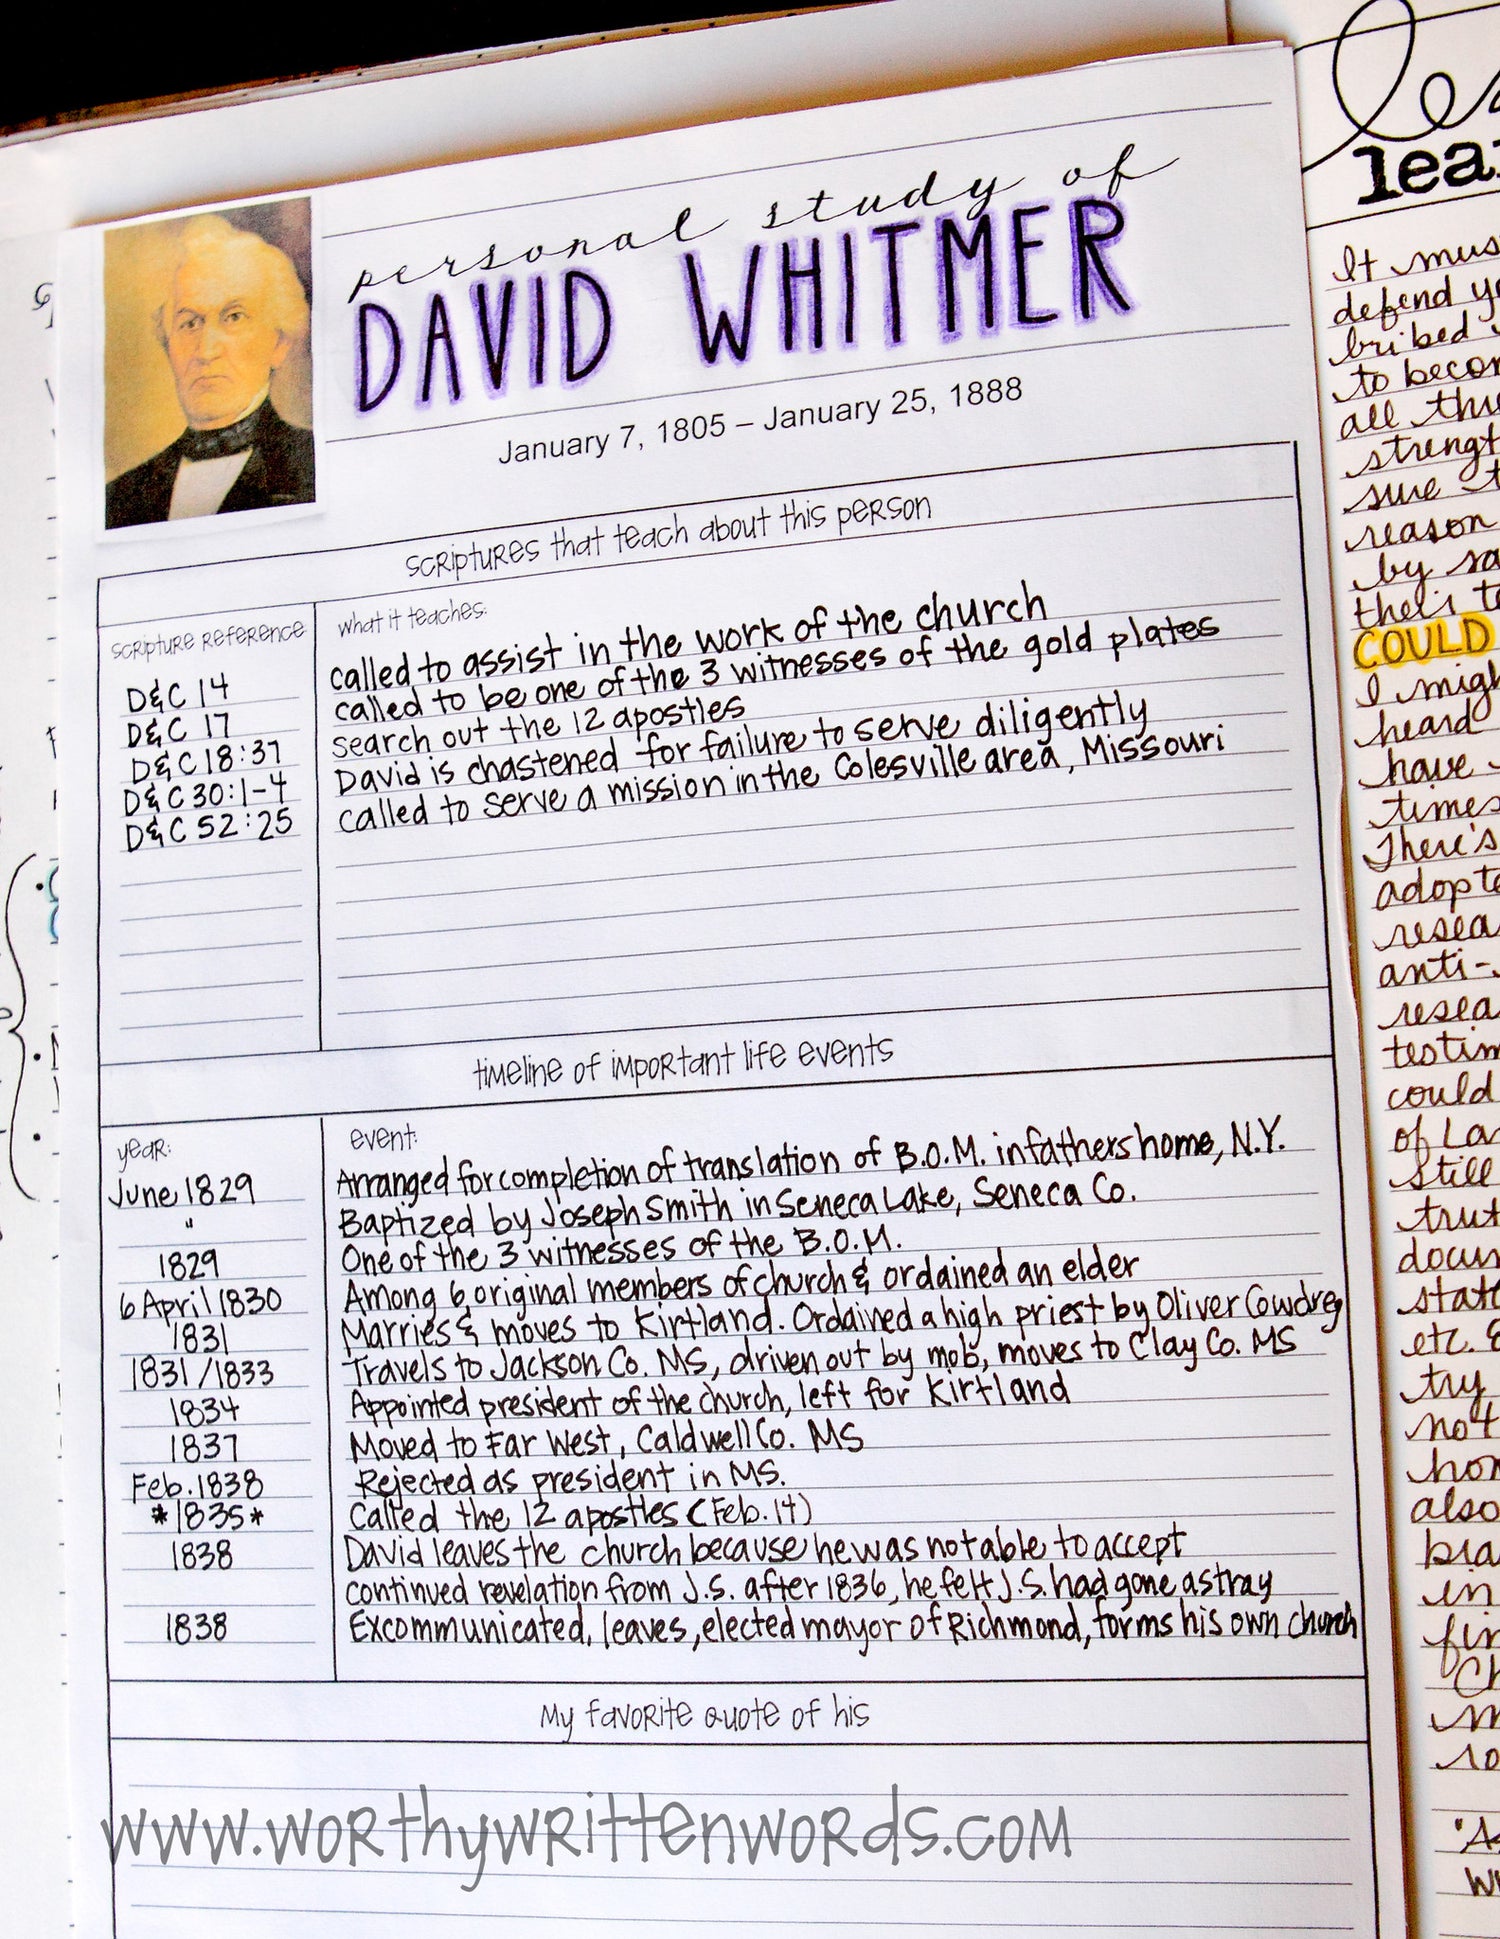 personal study of
DAVID WHITMER
January 7, 1805 – January 25, 1888
scriptures that teach about this person
scripture reference
what it teaches:
D&C 14 called to assist in the work of the church
D&C 17 called to be one of the 3 witnesses of the gold plates
D&C 18:37 search out the 12 apostles
D&C 30:1-4 David is chastened for failure to serve diligently
D&C 52:25 called to serve a mission in the Colesville area, Missouri
timeline of important life events
year:
event:
June 1829 Arranged for completion of translation of B.O.M. in fathers home, N.Y.
" Baptized by Joseph Smith in Seneca Lake, Seneca Co.
1829 One of the 3 witnesses of the B.O.M.
6 April 1830 Among 6 original members of church & ordained an elder
1831 Marries & moves to Kirtland. Ordained a high priest by Oliver Cowdrey
1831/1833 Travels to Jackson Co. MS, driven out by mob, moves to Clay Co. MS
1834 Appointed president of the church, left for Kirtland
1837 Moved to Far West, Caldwell Co. MS
Feb. 1838 Rejected as president in MS.
*1835* Called the 12 apostles (Feb. 14)
1838 David leaves the church because he was not able to accept
continued revelation from J.S. after 1836, he felt J.S. had gone astray
1838 Excommunicated, leaves, elected mayor of Richmond, forms his own church
My favorite quote of his
www.worthywrittenwords.com
It
defend
bribed
to
all
strengt
sure
reason
by
their
COULD
I
heard
have
times
There's
adopte
resea
anti-
resea
testim
could
of La
still
trut
docum
state
etc.
try
not
hom
also
bia
in